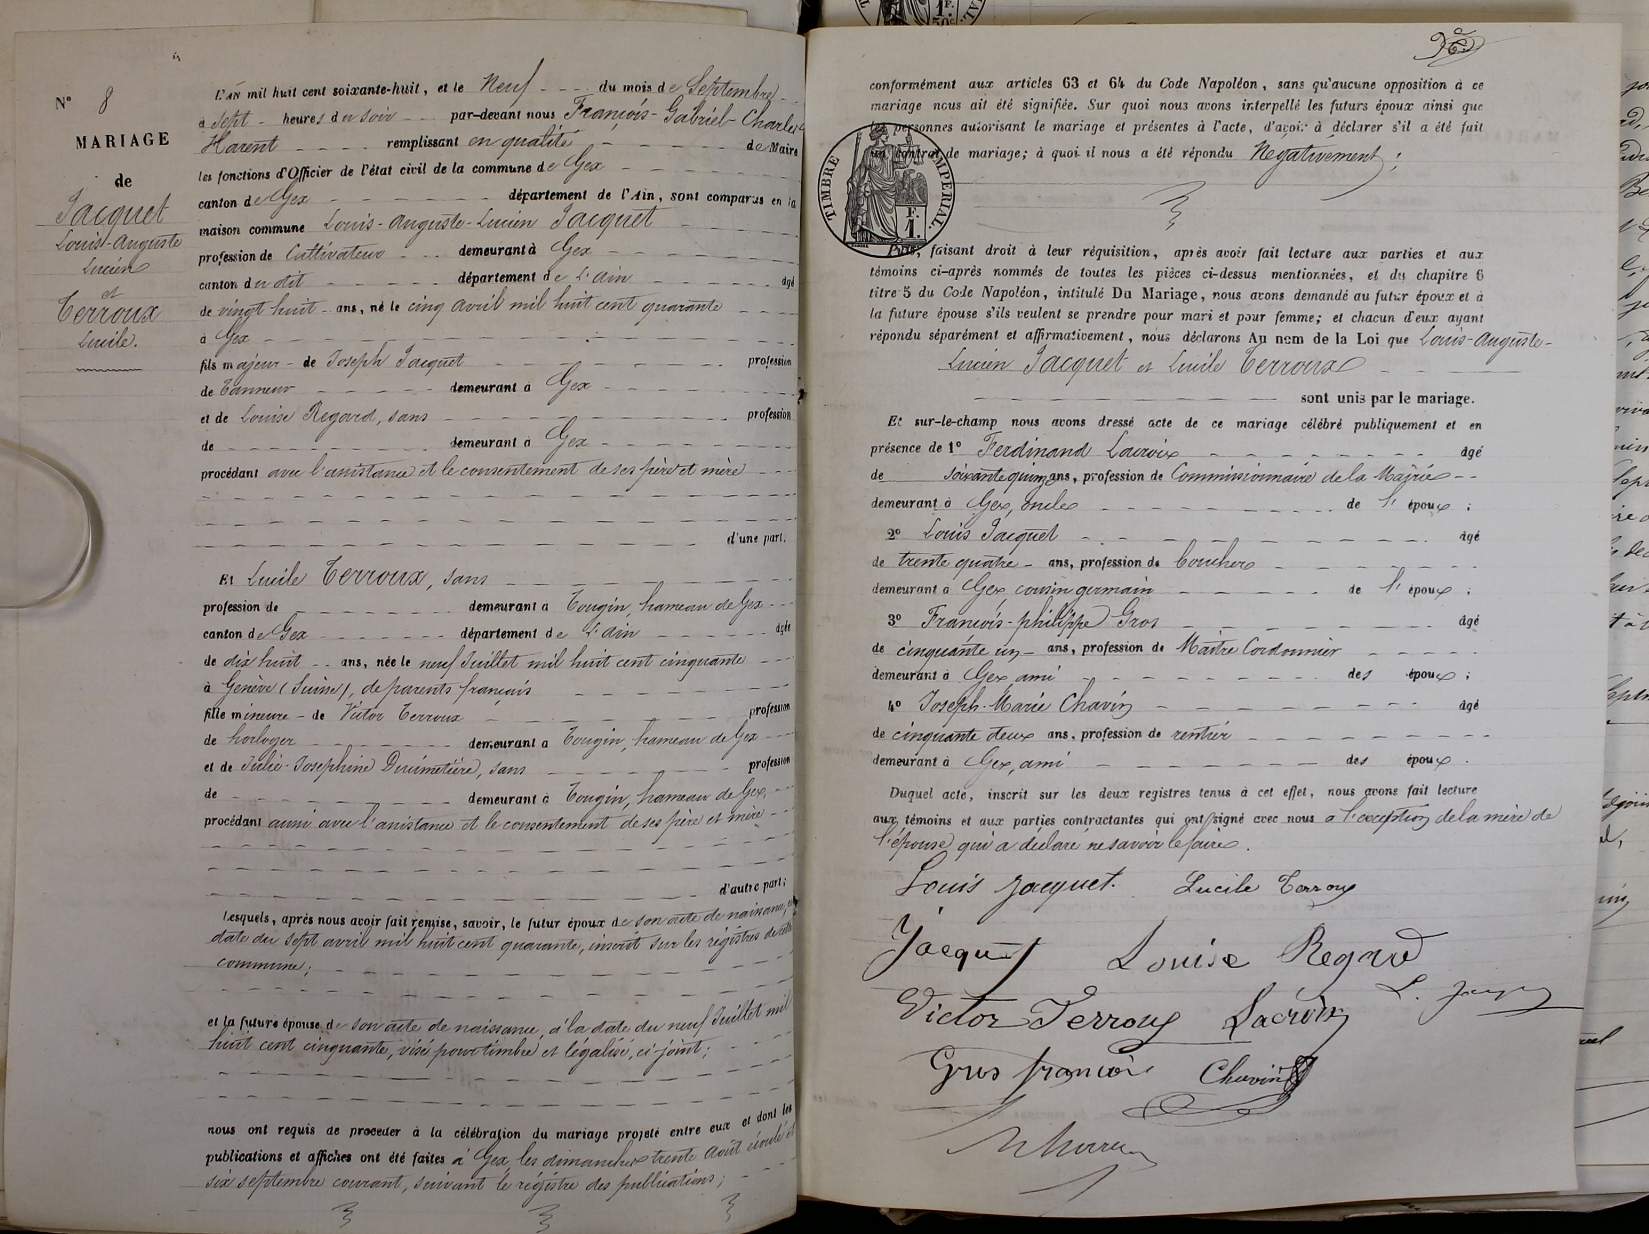 N° 8
MARIAGE
de
Jacquet
Louis-Auguste
Lucien
et
Terroux
Lucile.
L'AN mil huit cent soixante-huit, et le Neuf du mois de Septembre
à Sept heures du soir par-devant nous François-Gabriel-Charles
Harent remplissant en qualité de Maire
les fonctions d'Officier de l'état civil de la commune de Gex
canton de Gex département de l'Ain, sont comparus en la
maison commune Louis-Auguste-Lucien Jacquet
profession de Cultivateur demeurant à Gex
canton du dit département de L'Ain âgé
de vingt huit ans, né le cinq avril mil huit cent quarante
à Gex
fils majeur de Joseph Jacquet profession
de Tanneur demeurant à Gex
et de Louise Regard, sans profession
de demeurant à Gex
procédant avec l'assistance et le consentement de ses père et mère
d'une part.
Et Lucile Terroux, sans
profession de demeurant à Tougin, hameau de Gex
canton de Gex département de L'Ain âgée
de dix huit ans, née le neuf Juillet mil huit cent cinquante
à Genève (Suisse), de parents français
fille mineure de Victor Terroux profession
de horloger demeurant à Tougin, hameau de Gex
et de Julie-Josephine Ducimetière, sans profession
de demeurant à Tougin, hameau de Gex,
procédant aussi avec l'assistance et le consentement de ses père et mère
d'autre part;
Lesquels, après nous avoir fait remise, savoir, le futur époux de son acte de naissance, en
date du sept avril mil huit cent quarante, inscrit sur les régistres de cette
commune;
et la future épouse de son acte de naissance, à la date du neuf Juillet mil
huit cent cinquante, visé pour timbre et légalisé, ci-joint;
nous ont requis de procéder à la célébration du mariage projeté entre eux et dont les
publications et affiches ont été faites à Gex, les dimanches trente Août écoulé et
six septembre courant, suivant le régistre des publications;
conformément aux articles 63 et 64 du Code Napoléon, sans qu'aucune opposition à ce
mariage nous ait été signifiée. Sur quoi nous avons interpellé les futurs époux ainsi que
les personnes autorisant le mariage et présentes à l'acte, d'avoir à déclarer s'il a été fait
un contrat de mariage; à quoi il nous a été répondu Négativement;
TIMBRE IMPÉRIAL.
F.
1.
Puis, faisant droit à leur réquisition, après avoir fait lecture aux parties et aux
témoins ci-après nommés de toutes les pièces ci-dessus mentionnées, et du chapitre 6
titre 5 du Code Napoléon, intitulé Du Mariage, nous avons demandé au futur époux et à
la future épouse s'ils veulent se prendre pour mari et pour femme; et chacun d'eux ayant
répondu séparément et affirmativement, nous déclarons Au nom de la Loi que Louis-Auguste-
Lucien Jacquet et Lucile Terroux
sont unis par le mariage.
Et sur-le-champ nous avons dressé acte de ce mariage célébré publiquement et en
présence de 1° Ferdinand Lacroix âgé
de soixante quinze ans, profession de Commissionnaire de la Mairie
demeurant à Gex, oncle de l' époux;
2° Louis Jacquet âgé
de trente quatre ans, profession de boucher
demeurant à Gex, cousin germain de l' époux;
3° François-philippe Gros âgé
de cinquante un ans, profession de Maître Cordonnier
demeurant à Gex, ami des époux;
4° Joseph-Marie Chavin âgé
de cinquante deux ans, profession de rentier
demeurant à Gex, ami des époux.
Duquel acte, inscrit sur les deux registres tenus à cet effet, nous avons fait lecture
aux témoins et aux parties contractantes qui ont signé avec nous à l'exception de la mère de
l'épouse qui a déclaré ne savoir le faire.
Louis Jacquet. Lucile Terroux
Jacquet Louise Regard
Victor Terroux Lacroix L.
Gros françois Chavin